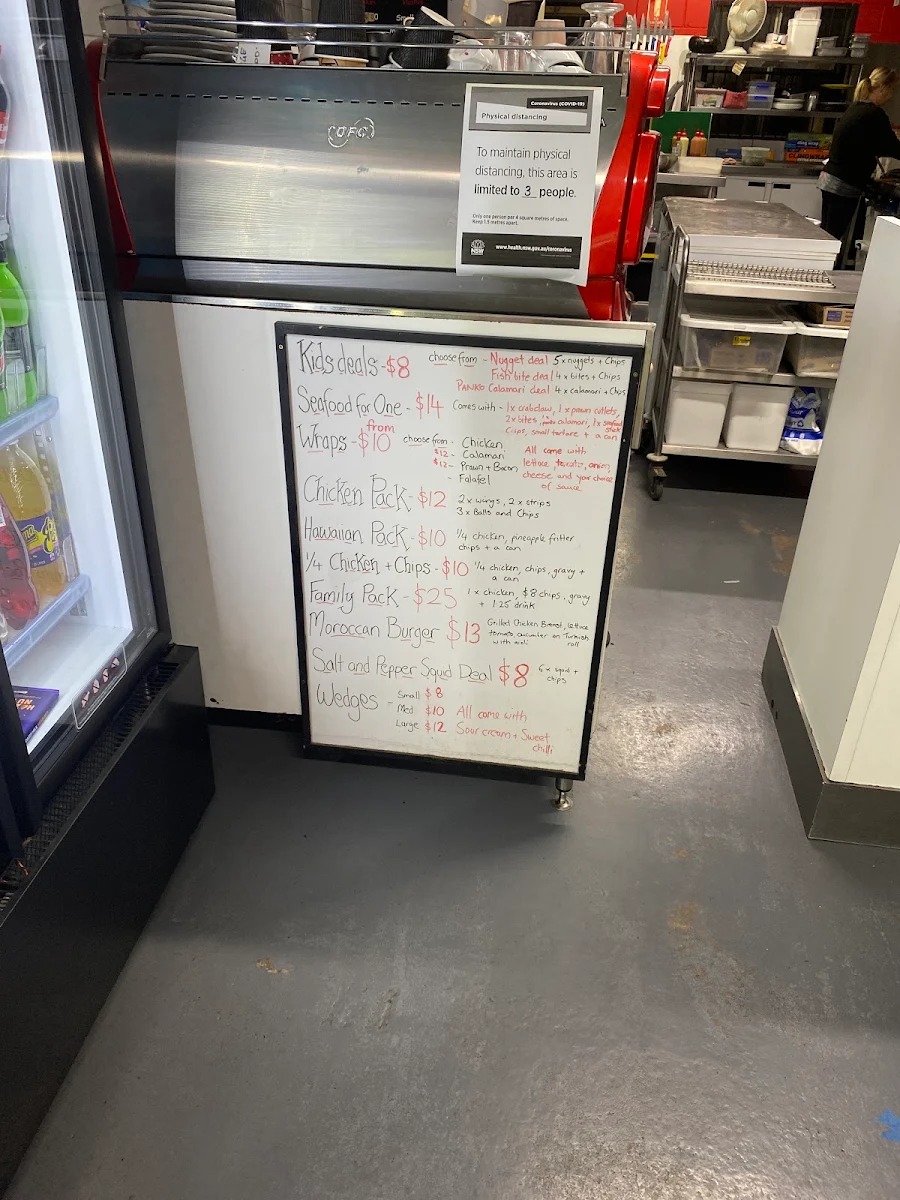 Coronavirus (COVID-19)
Physical distancing
To maintain physical
distancing, this area is
limited to 3 people.
Only one person per 4 square metres of space.
Keep 1.5 metres apart.
www.health.nsw.gov.au/coronavirus
Kids deals - $8 choose from - Nugget deal 5 x nuggets + Chips
Fish bite deal 4 x bites + Chips
PANKO Calamari deal 4 x calamari + Chips
Seafood for One - $14 Comes with - 1x crabclaw, 1x prawn cutlets,
2x bites, calamari, 1x seafood stick
Chips, small tartare + a can
Wraps - from $10 choose from - Chicken
$12 - Calamari
$12 - Prawn + Bacon
- Falafel
All come with
lettuce, tomato, onion,
cheese and your choice
of sauce
Chicken Pack - $12 2 x wings, 2 x strips
3 x Balls and Chips
Hawaiian Pack - $10 1/4 chicken, pineapple fritter
chips + a can
1/4 Chicken + Chips - $10 1/4 chicken, chips, gravy +
a can
Family Pack - $25 1 x chicken, $8 chips, gravy
+ 1.25 drink
Moroccan Burger $13 Grilled Chicken Breast, lettuce
tomato, cucumber on Turkish
roll
with aioli
Salt and Pepper Squid Deal $8 6 x squid +
chips
Wedges - Small $8
Med $10
Large $12
All come with
Sour cream + Sweet
chilli